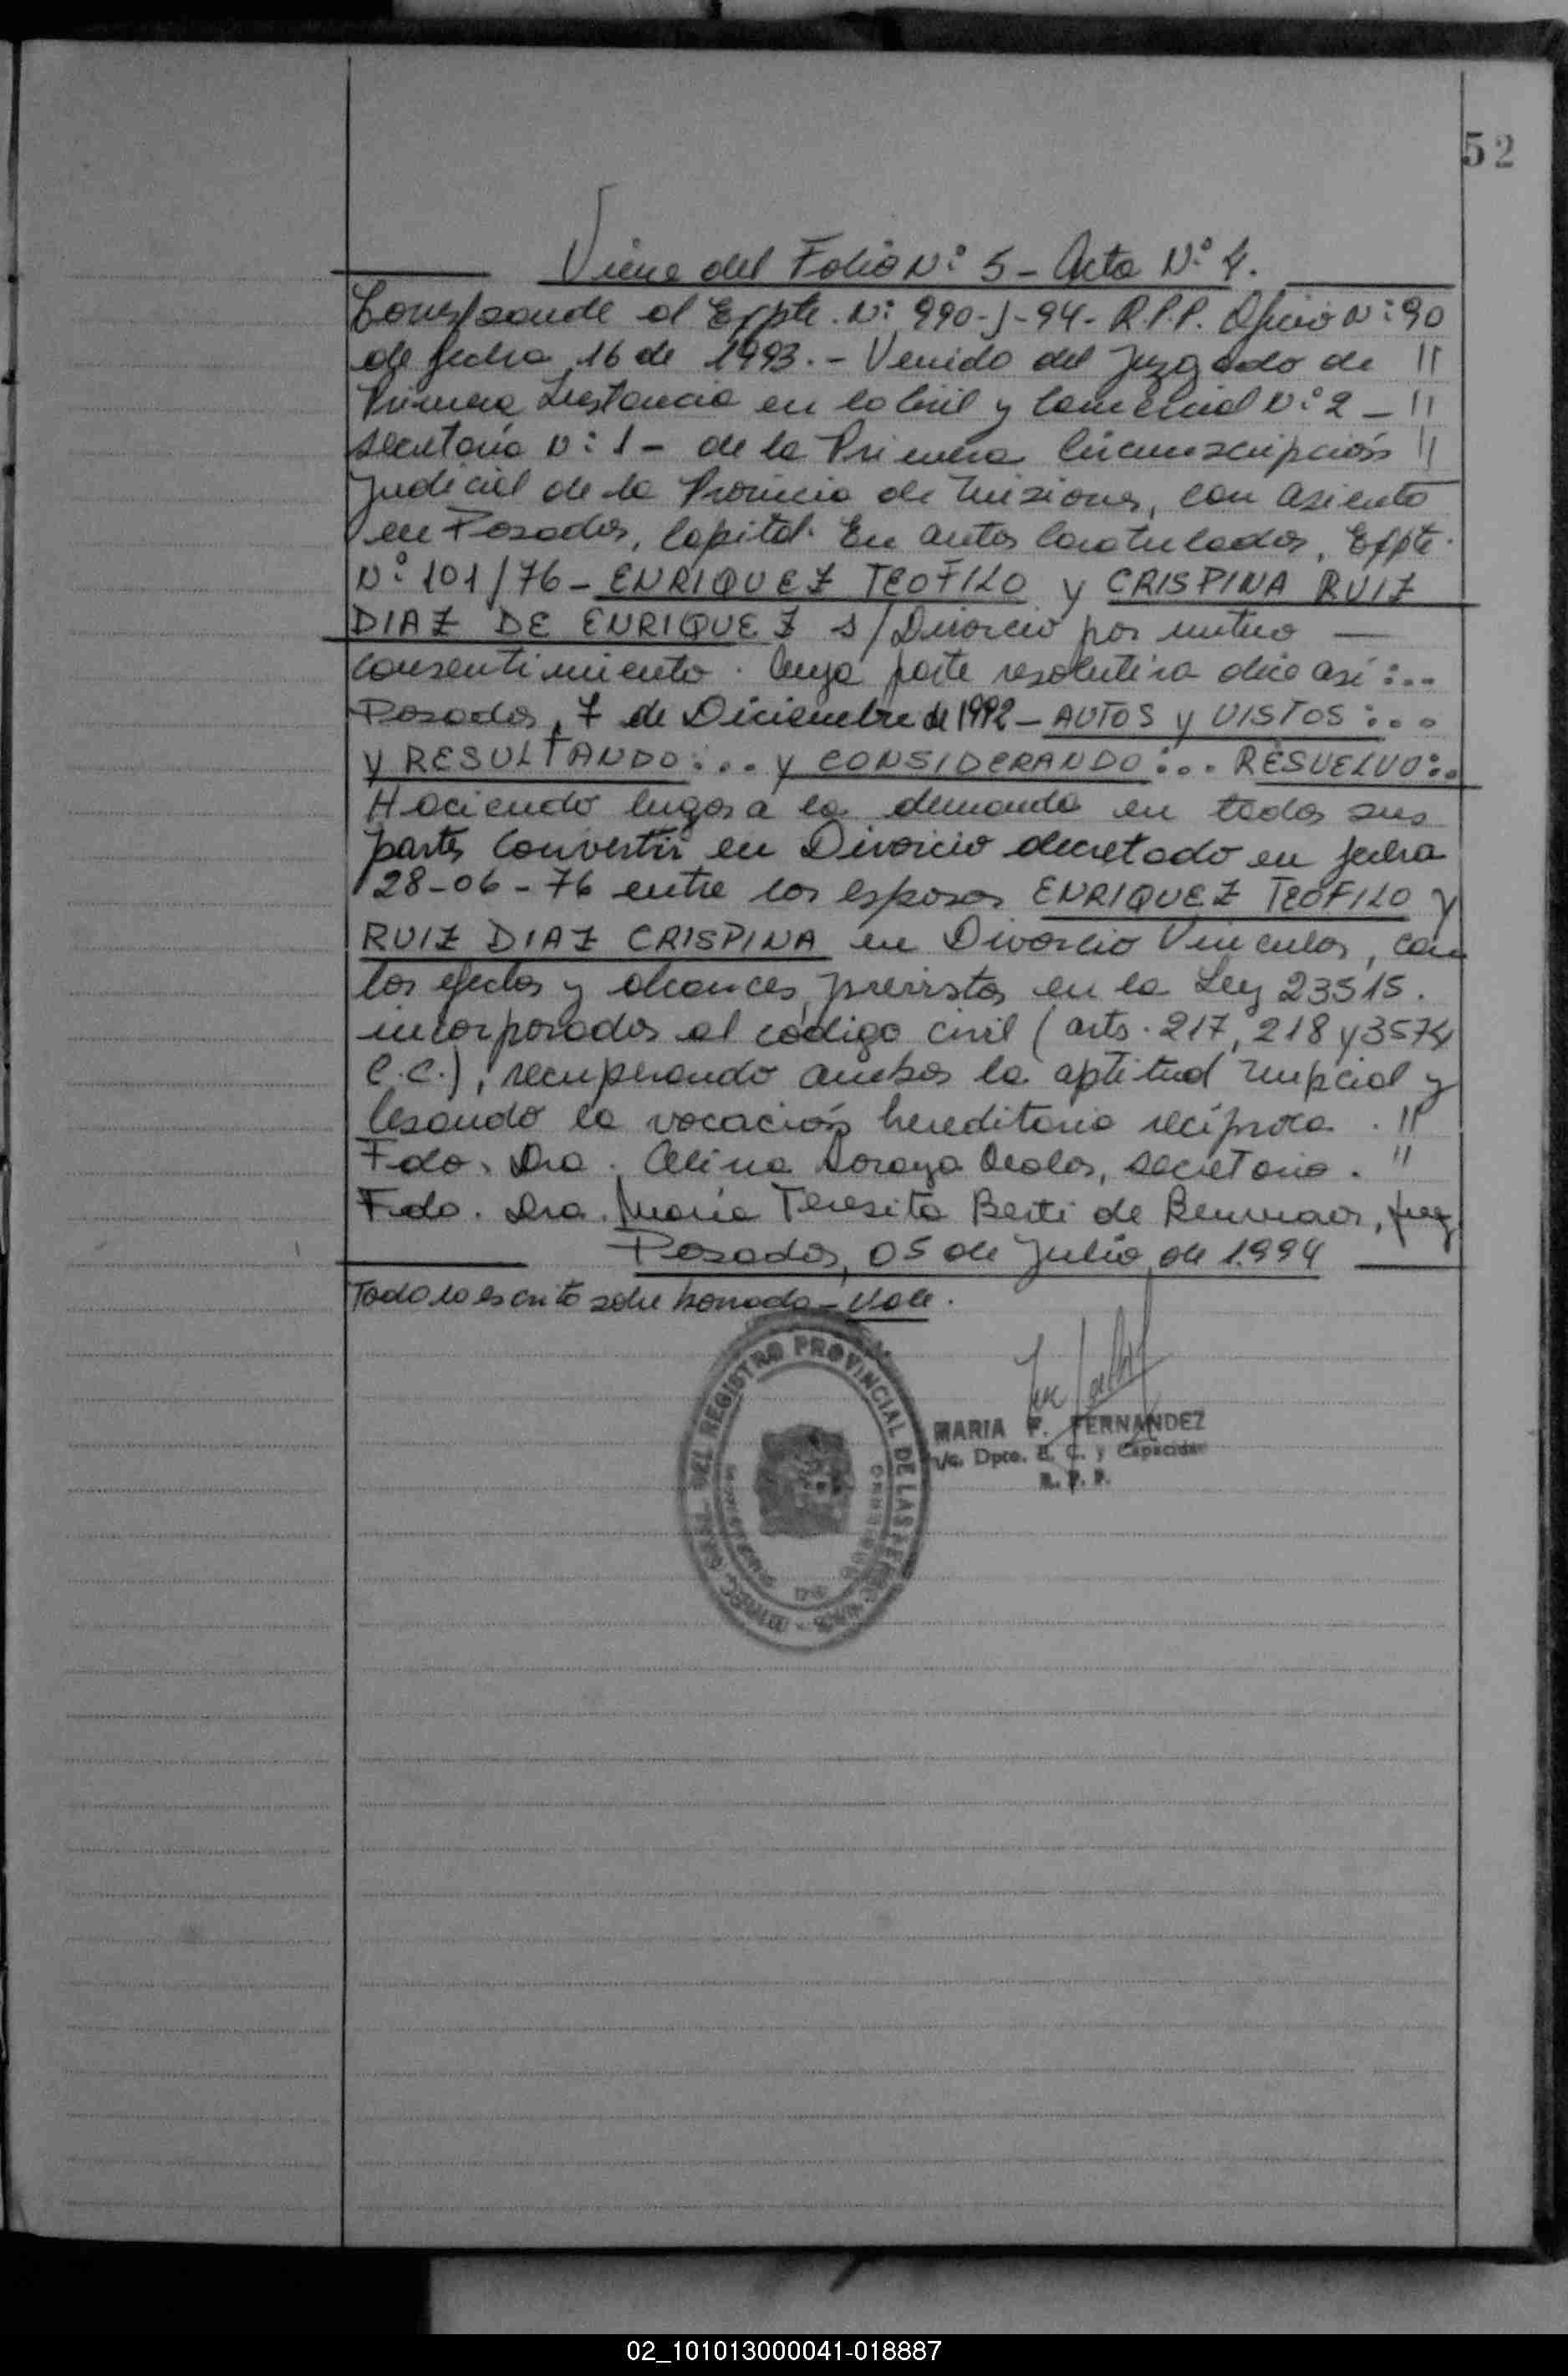 52
Viene del Folio N° 5 - Acta N° 4.
Corresponde al Expte. N° 990-J-94- R.P.P. Oficio N° 90
de fecha 16 de 1993.- Venido del Juzgado de "
Primera Instancia en lo Civil y Comercial N° 2 - "
secretaría N° 1 - de la Primera Circunscripción "
Judicial de la Provincia de Misiones, con asiento
en Posadas, Capital. En autos Caratulados, Expte.
N° 101/76 - ENRIQUEZ TEOFILO y CRISPINA RUIZ
DIAZ DE ENRIQUEZ s/Divorcio por mutuo —
consentimiento. Cuya parte resolutiva dice así:...
Posadas, 7 de Diciembre de 1992 - AUTOS y VISTOS:...
y RESULTANDO:... y CONSIDERANDO:... RESUELVO:..
Haciendo lugar a la demanda en todas sus
partes Convertir en Divorcio decretado en fecha
28-06-76 entre los esposos ENRIQUEZ TEOFILO y
RUIZ DIAZ CRISPINA en Divorcio Vincular, con
los efectos y alcances previstos en la Ley 23515.
incorporados al código civil (arts. 217, 218 y 3574
C.C.), recuperando ambos la aptitud nupcial y
Cesando la vocación hereditaria recíproca. "
Fdo. Dra. Celina secretaria. "
Fdo. Dra. María Teresita Berti de Juez
Posadas, 05 de Julio de 1.994
Todo lo escrito sobre borrado - Vale.
DEL REGISTRO PROVINCIAL DE LAS
MARIA F. FERNANDEZ
Dpto. E. C. y Capacidad
R. P. P.
02_101013000041-018887